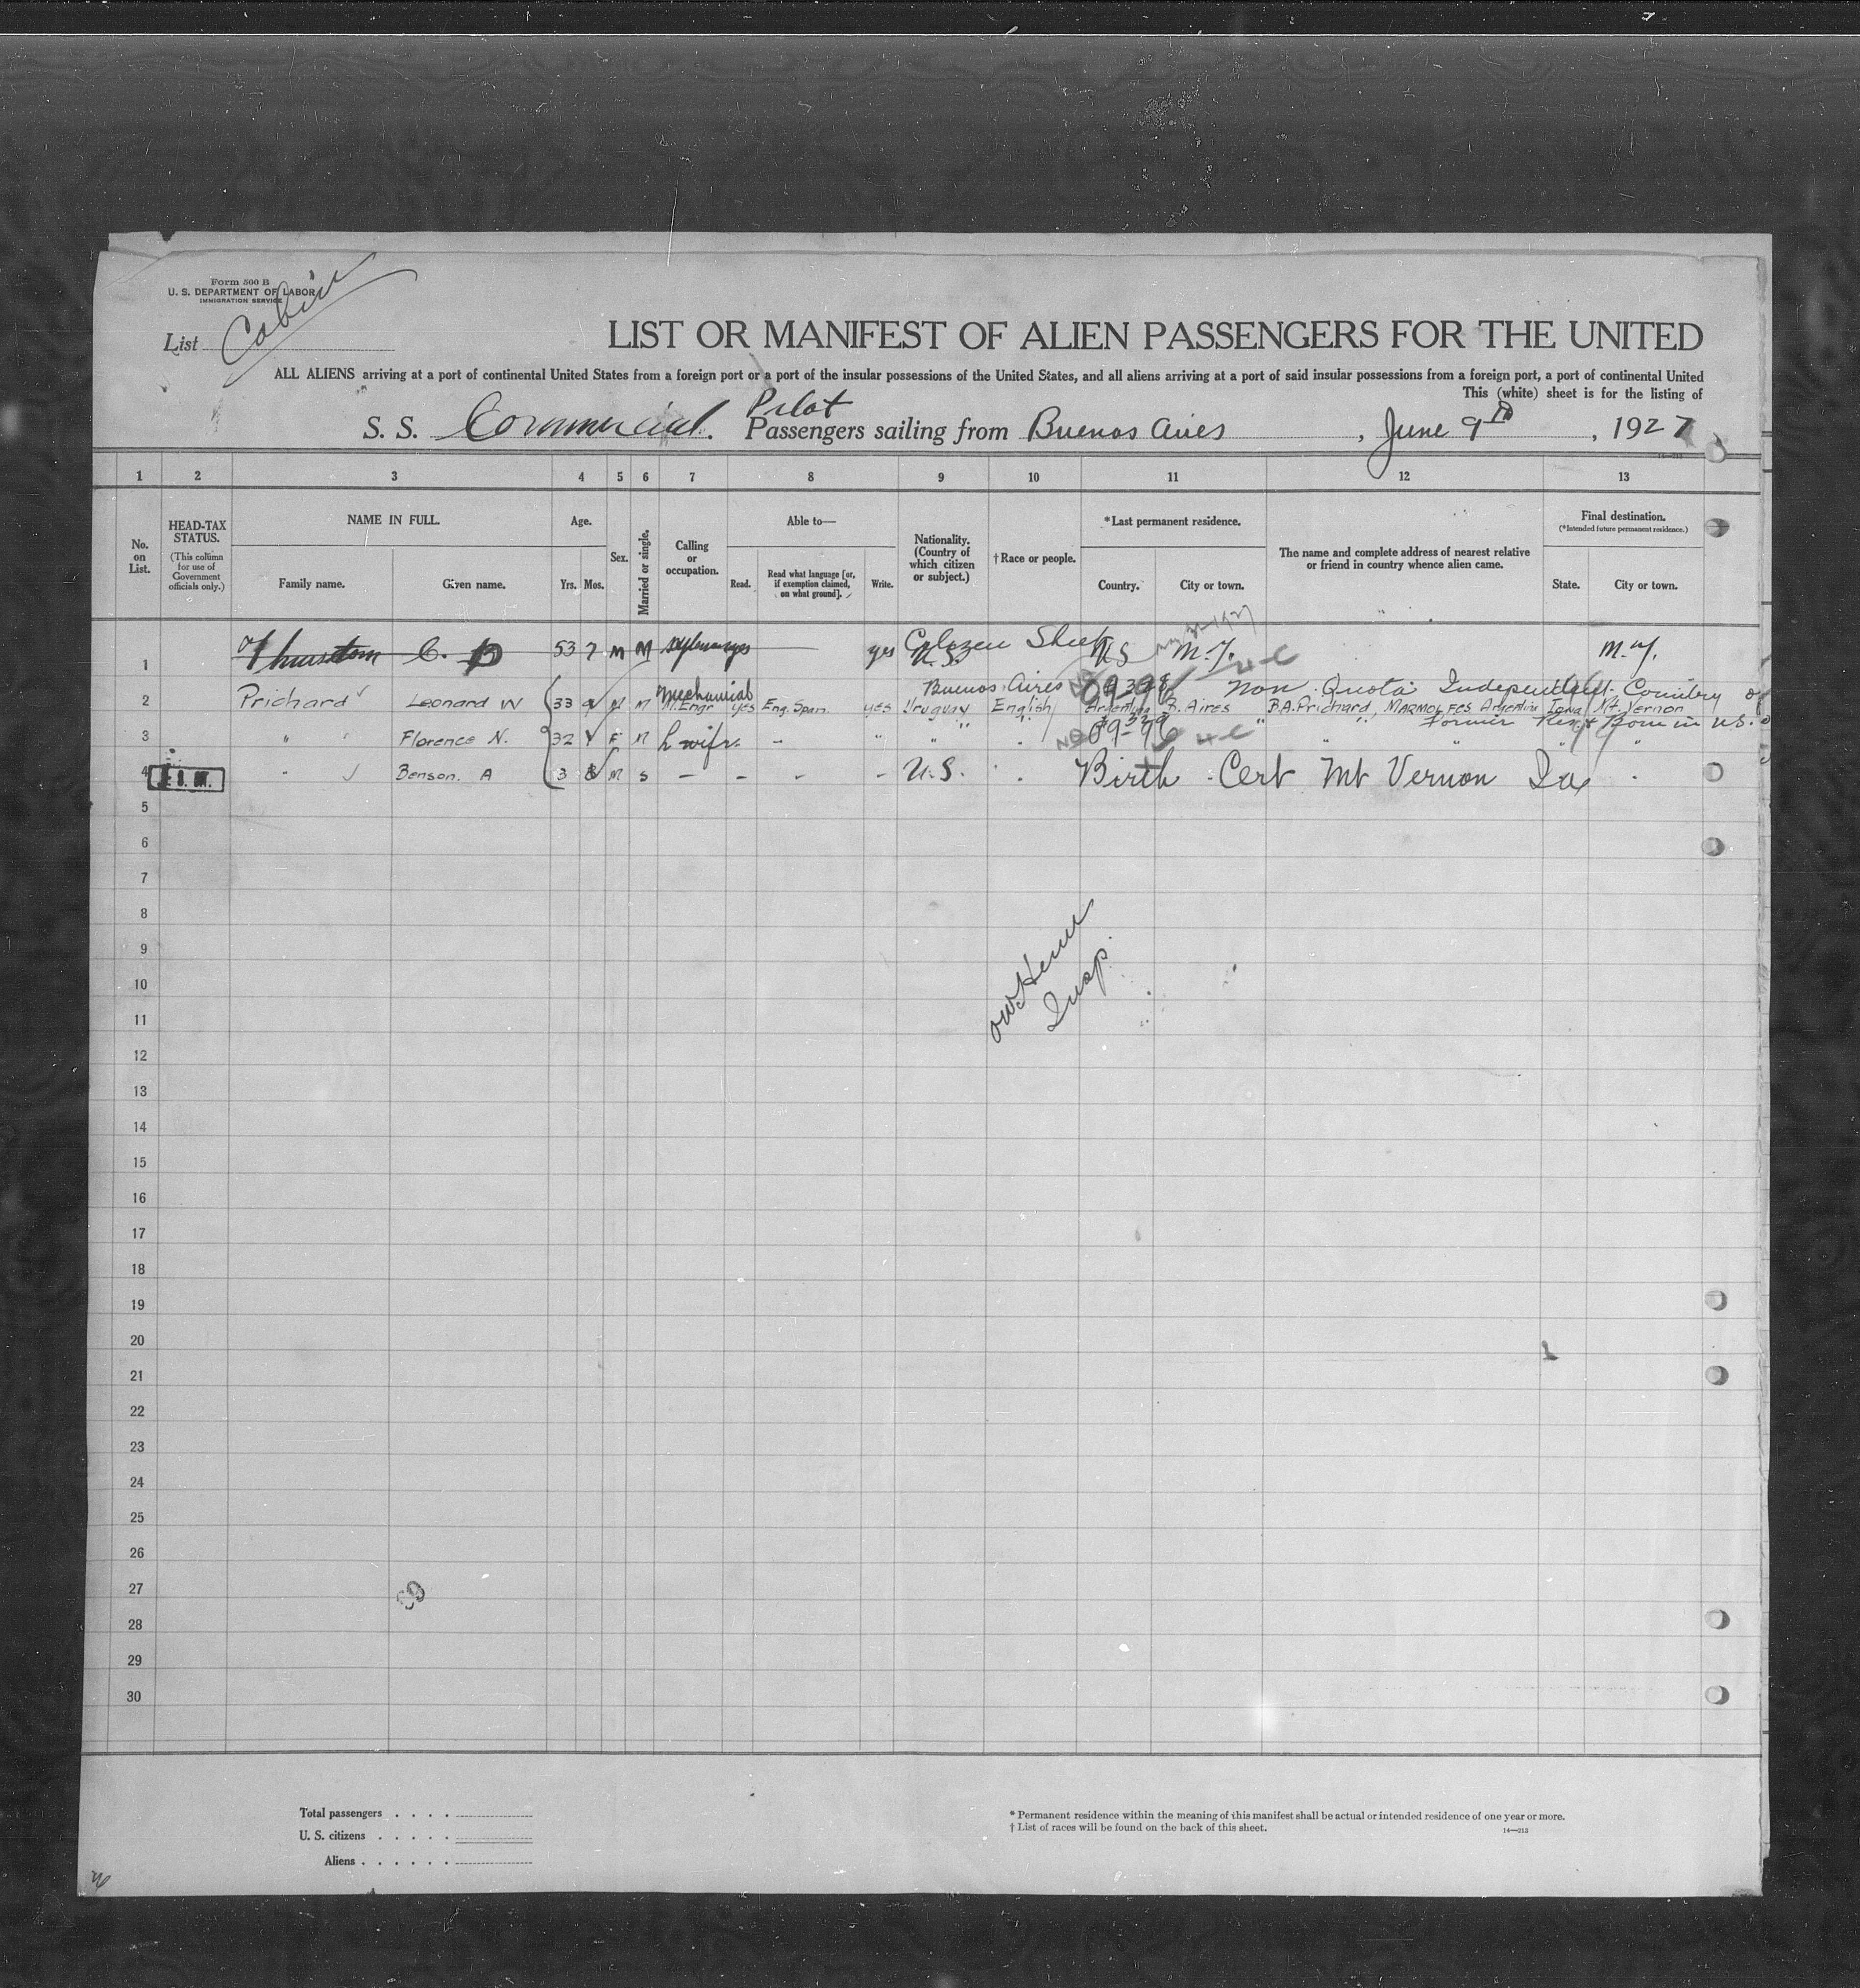 Form 500 B
U. S. DEPARTMENT OF LABOR
IMMIGRATION SERVICE
List Cabin
LIST OR MANIFEST OF ALIEN PASSENGERS FOR THE UNITED
ALL ALIENS arriving at a port of continental United States from a foreign port or a port of the insular possessions of the United States, and all aliens arriving at a port of said insular possessions from a foreign port, a port of continental United
This (white) sheet is for the listing of
S. S. Commercial Pilot Passengers sailing from Buenos Aires, June 9th, 1927
1 2 3 4 5 6 7 8 9 10 11 12 13
No. on List.
HEAD-TAX STATUS.
(This column for use of Government officials only.)
NAME IN FULL.
Family name. Given name.
Age.
Yrs. Mos.
Sex.
Married or single.
Calling or occupation.
Able to—
Read. Read what language [or, if exemption claimed, on what ground]. Write.
Nationality. (Country of which citizen or subject.)
†Race or people.
*Last permanent residence.
Country. City or town.
The name and complete address of nearest relative or friend in country whence alien came.
Final destination.
(*Intended future permanent residence.)
State. City or town.
1 C. B 53 7 M M yes yes U.S. U.S N.Y. N.Y.
Buenos Aires Non Quota Independent Country of
2 Prichard Leonard W 33 M M Mechanical Engr yes Eng. Span. yes Uruguay English Argentina B. Aires B.A. Prichard, Marmol FCS Argentina Iowa Mt. Vernon
Born in U.S.
3 " " Florence N. 32 F M H wife - " " "
4 " Benson. A 3 M S - - - - U.S. Birth Cert Mt Vernon Ia
5
6
7
8
9
10
11
12
13
14
15
16
17
18
19
20
21
22
23
24
25
26
27
28
29
30
Insp.
Total passengers
U. S. citizens
Aliens
* Permanent residence within the meaning of this manifest shall be actual or intended residence of one year or more.
† List of races will be found on the back of this sheet.
14—213